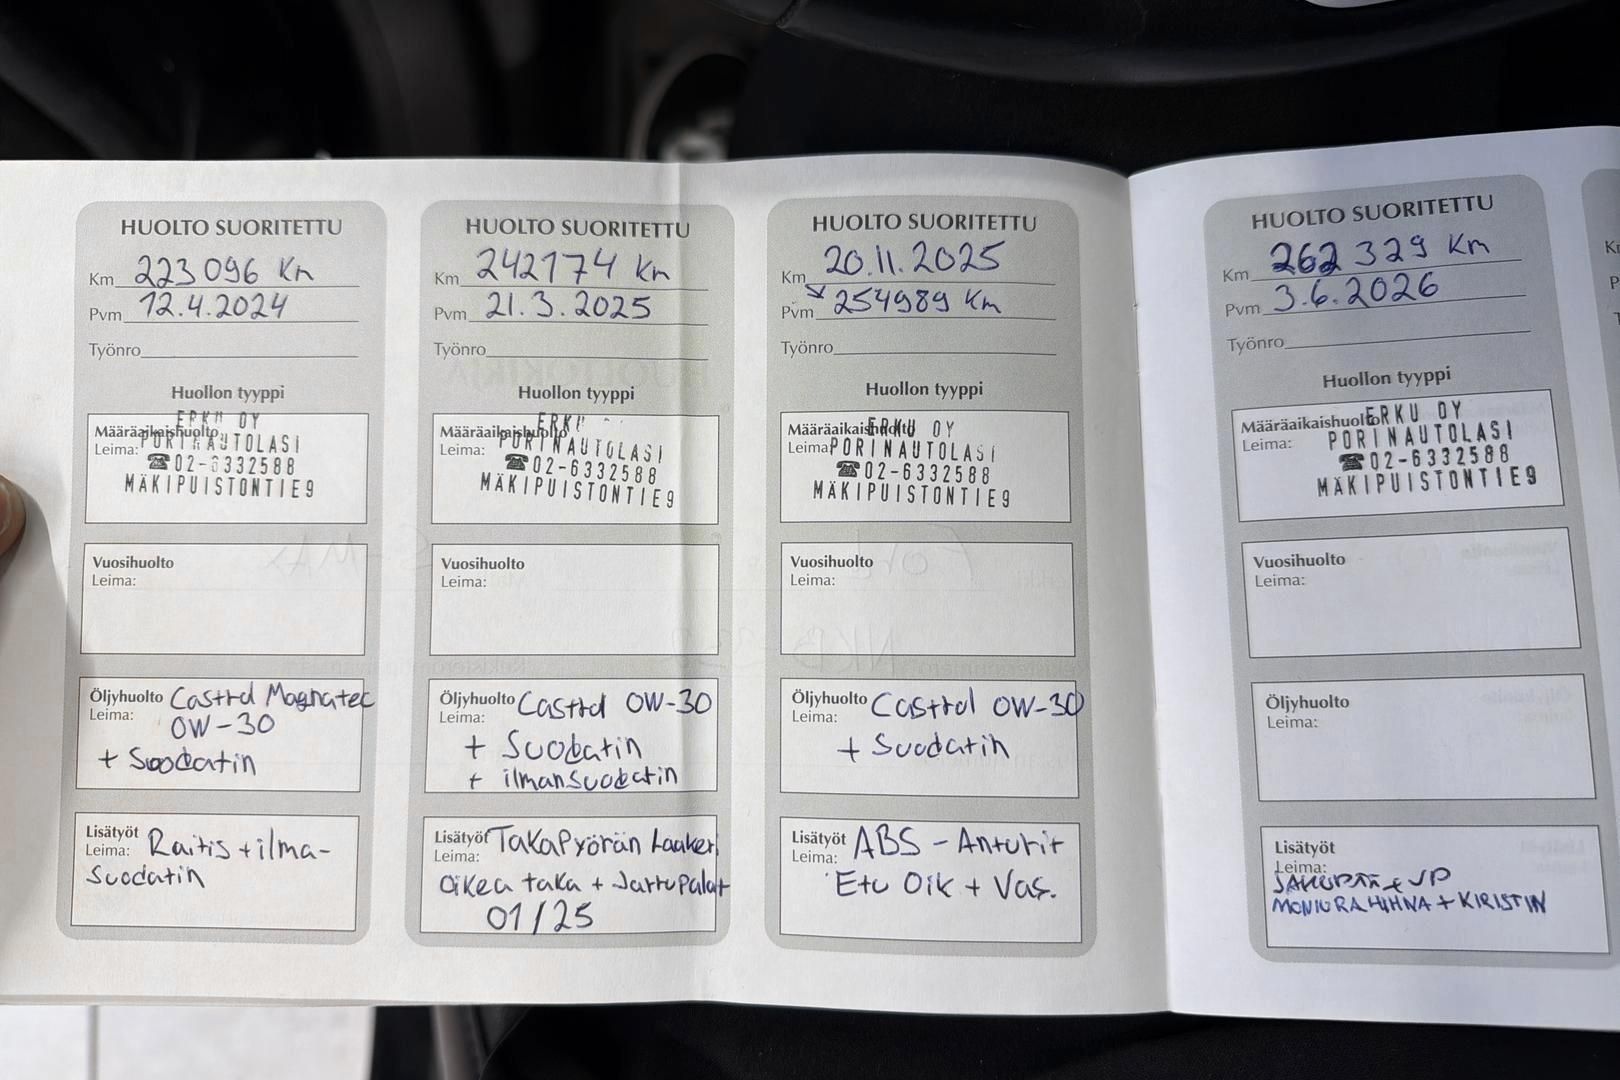 HUOLTO SUORITETTU
Km 223 096 Km
Pvm 12.4.2024
Työnro
Huollon tyyppi
Määräaikaishuolto
Leima:
ERKU OY
PORINAUTOLASI
☎02-6332588
MÄKIPUISTONTIE9
Vuosihuolto
Leima:
Öljyhuolto Castrol Magnatec
Leima: 0W-30
+ Suodatin
Lisätyöt Raitis + ilma-
Leima:
Suodatin
HUOLTO SUORITETTU
Km 242174 Km
Pvm 21.3.2025
Työnro
Huollon tyyppi
Määräaikaishuolto
Leima:
ERKU
PORINAUTOLASI
☎02-6332588
MÄKIPUISTONTIE9
Vuosihuolto
Leima:
Öljyhuolto Castrol 0W-30
Leima:
+ Suodatin
+ ilmanSuodatin
Lisätyöt TakaPyörän Laakeri
Leima:
Oikea taka + Jarrupalat
01/25
HUOLTO SUORITETTU
Km 20.11.2025
Pvm 254989 Km
Työnro
Huollon tyyppi
Määräaikaishuolto
Leima:
ERKU OY
PORINAUTOLASI
☎02-6332588
MÄKIPUISTONTIE9
Vuosihuolto
Leima:
Öljyhuolto Castrol 0W-30
Leima:
+ Suodatin
Lisätyöt ABS - Anturit
Leima:
Etu Oik + Vas.
HUOLTO SUORITETTU
Km 262 329 Km
Pvm 3.6.2026
Työnro
Huollon tyyppi
Määräaikaishuolto
Leima:
ERKU OY
PORINAUTOLASI
☎02-6332588
MÄKIPUISTONTIE9
Vuosihuolto
Leima:
Öljyhuolto
Leima:
Lisätyöt
Leima:
JAKOPÄÄ + VP
MONIURAHIHNA + KIRISTIN